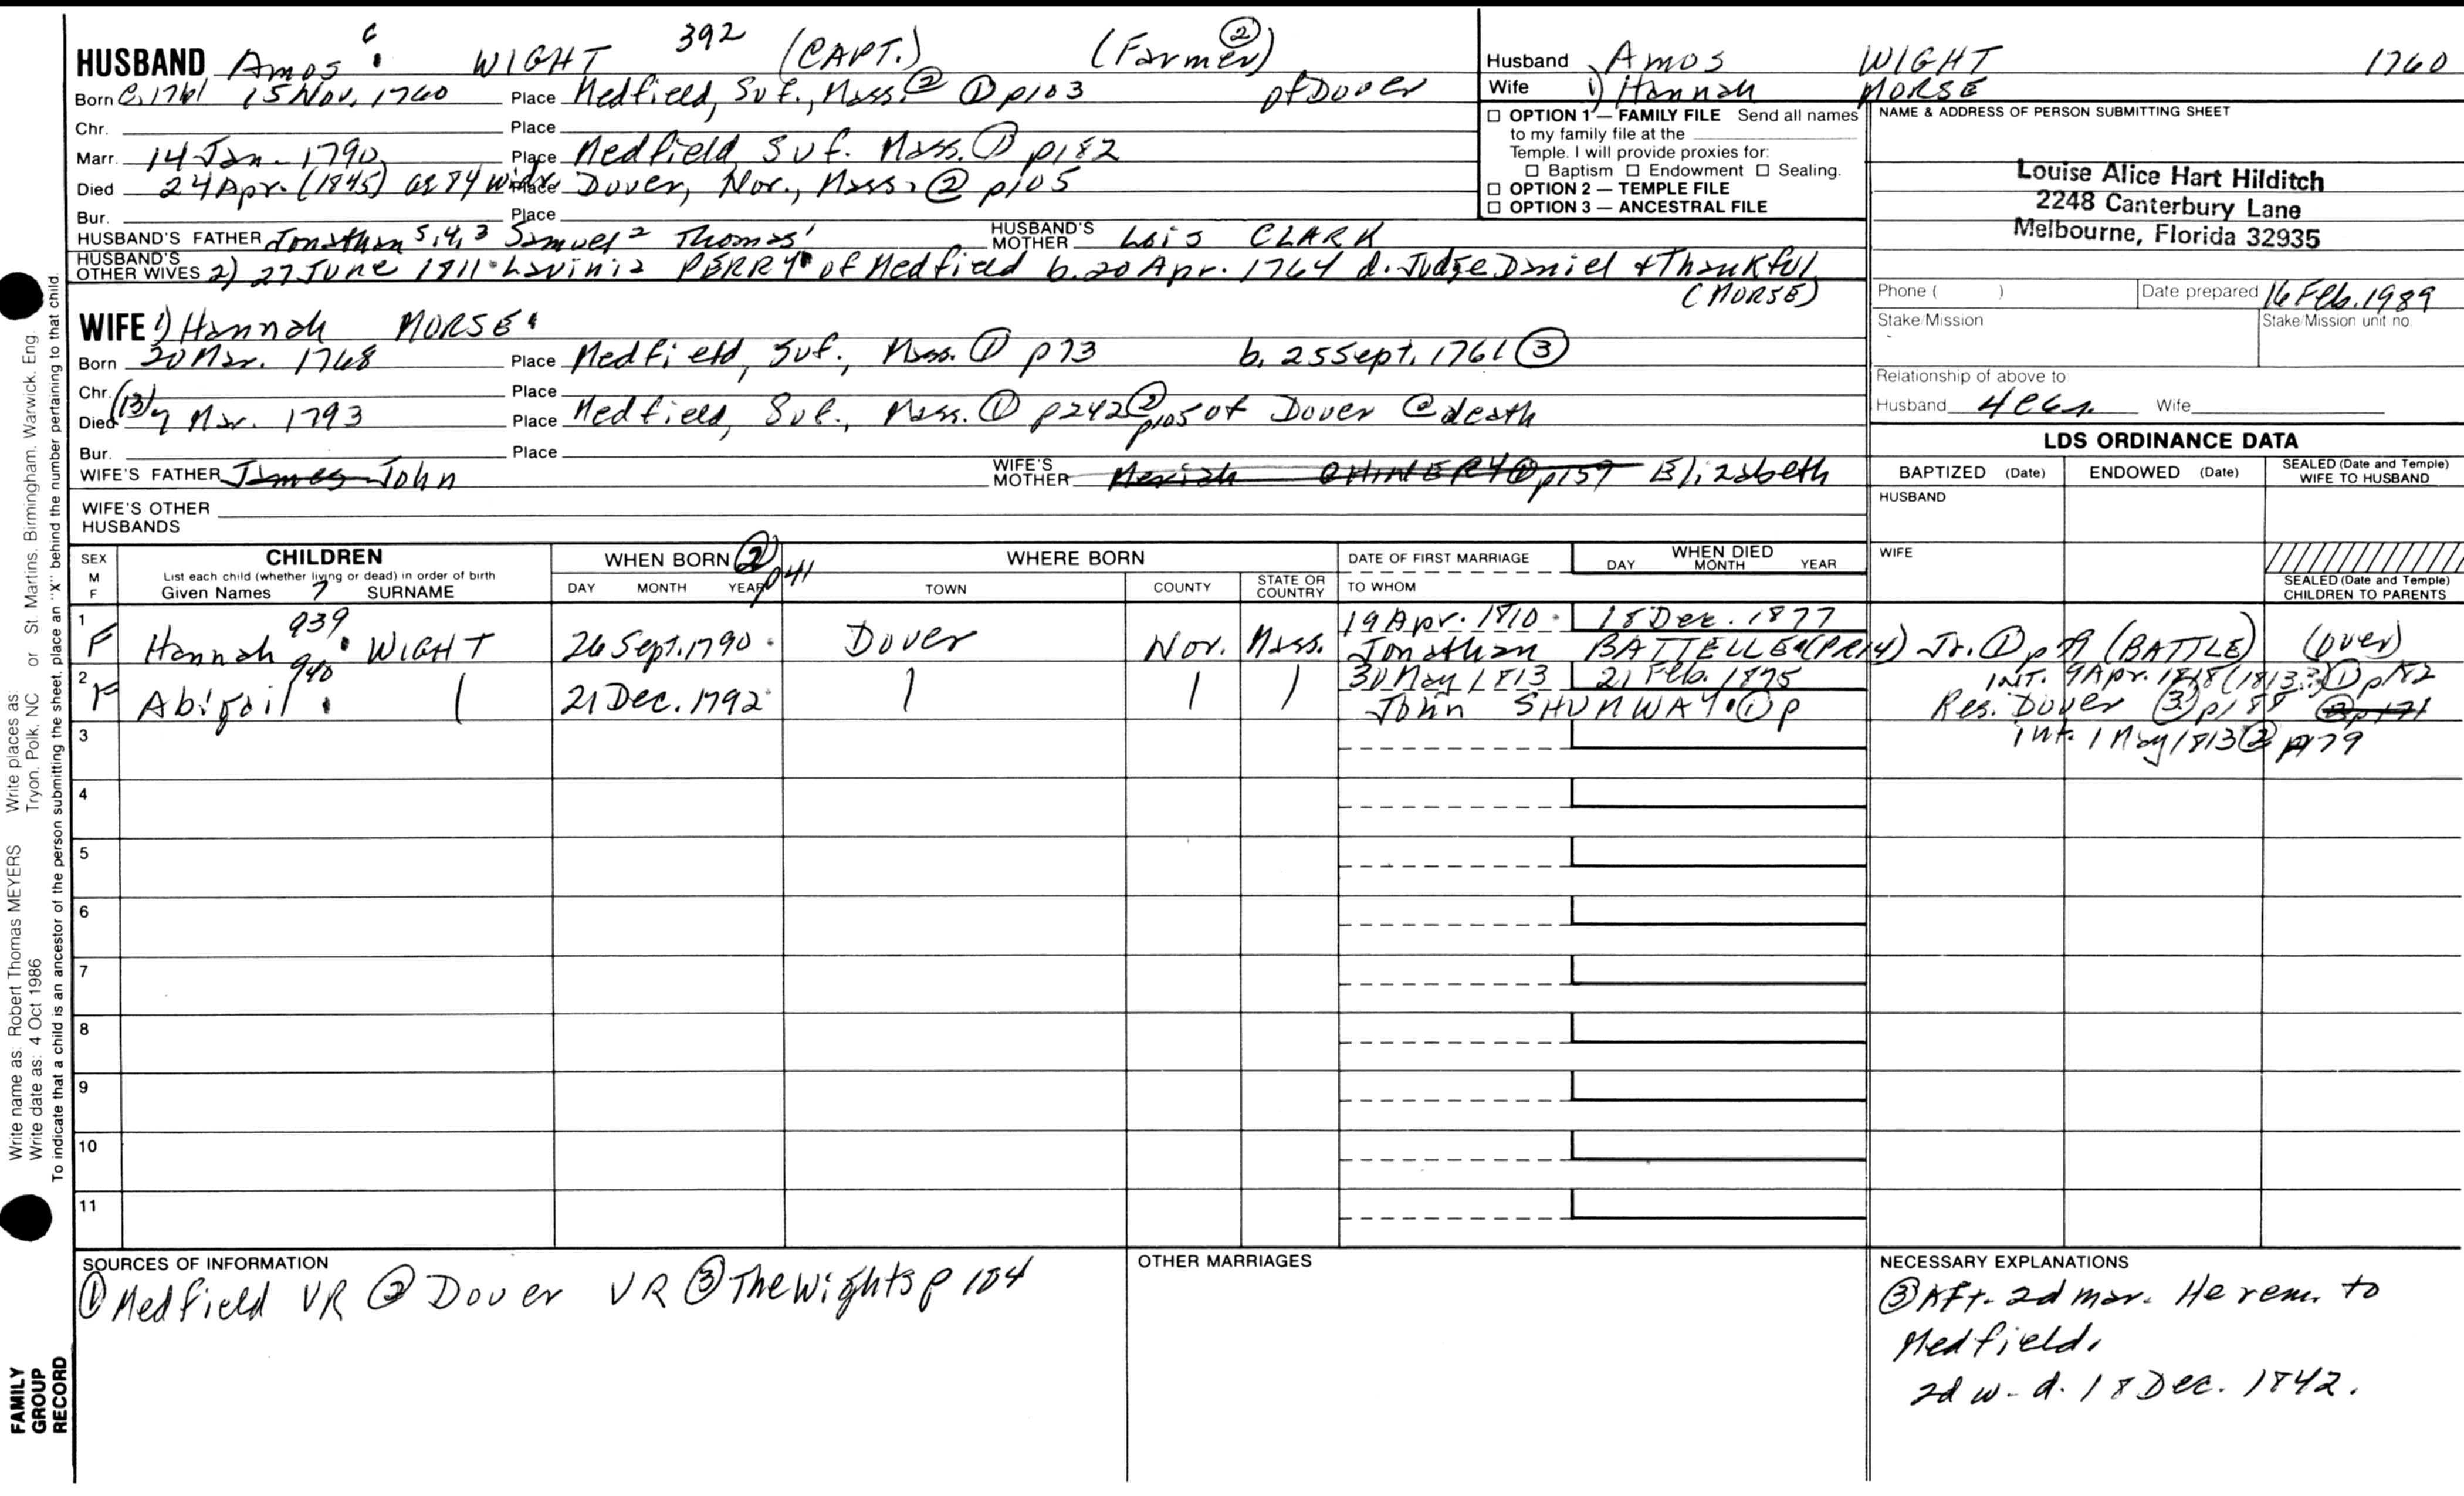 HUSBAND Amos 6 WIGHT 392 (CAPT.) (Farmer) ②
Born c. 1761 15 Nov. 1760 Place Medfield, Suf., Mass. ② ① p103 of Dover
Chr. Place
Marr. 14 Jan. 1790 Place Medfield, Suf. Mass. ① p182
Died 24 Apr. (1845) ae 84 widr. Place Dover, Nor., Mass. ② p105
Bur. Place
HUSBAND'S FATHER Jonathan 5,4,3 Samuel 2 Thomas 1 HUSBAND'S MOTHER Lois CLARK
HUSBAND'S OTHER WIVES 2) 27 June 1811 Lavinia PERRY of Medfield b. 20 Apr. 1764 d. Judge Daniel + Thankful
(MORSE)
WIFE 1) Hannah MORSE
Born 20 Mar. 1768 Place Medfield, Suf., Mass. ① p73 b. 25 Sept. 1761 ③
Chr. Place
Died (13) 7 Mar. 1793 Place Medfield, Suf., Mass. ① p242 ② p105 of Dover @ death
Bur. Place
WIFE'S FATHER James John WIFE'S MOTHER CHINERY ① p157 Elizabeth
WIFE'S OTHER HUSBANDS
Husband Amos WIGHT 1760
Wife 1) Hannah MORSE
☐ OPTION 1 — FAMILY FILE Send all names
to my family file at the
Temple. I will provide proxies for:
☐ Baptism ☐ Endowment ☐ Sealing.
☐ OPTION 2 — TEMPLE FILE
☐ OPTION 3 — ANCESTRAL FILE
NAME & ADDRESS OF PERSON SUBMITTING SHEET
Louise Alice Hart Hilditch
2248 Canterbury Lane
Melbourne, Florida 32935
Phone ( ) Date prepared 16 Feb. 1989
Stake/Mission Stake/Mission unit no.
Relationship of above to
Husband Wife
LDS ORDINANCE DATA
BAPTIZED (Date) ENDOWED (Date) SEALED (Date and Temple) WIFE TO HUSBAND
HUSBAND
WIFE
SEALED (Date and Temple) CHILDREN TO PARENTS
SEX M F
CHILDREN
List each child (whether living or dead) in order of birth
Given Names 7 SURNAME
WHEN BORN ② p41
DAY MONTH YEAR
WHERE BORN
TOWN COUNTY STATE OR COUNTRY
DATE OF FIRST MARRIAGE
TO WHOM
WHEN DIED
DAY MONTH YEAR
1 F Hannah 939 WIGHT 26 Sept. 1790 Dover Nor. Mass. 19 Apr. 1810 18 Dec. 1877
Jonathan BATTELLE Jr. ① (BATTLE) (over)
2 F Abigail 940 21 Dec. 1792 30 May 1813 21 Feb. 1875 INT. 9 Apr. 1818 (1813?) ① p182
John SHUMWAY ① p Res. Dover ③ p188 ② p171
Int. 1 May 1813 ② p179
3
4
5
6
7
8
9
10
11
SOURCES OF INFORMATION
① Medfield VR ② Dover VR ③ The Wights p 104
OTHER MARRIAGES
NECESSARY EXPLANATIONS
③ Aft. 2d mar. He rem. to
Medfield.
2d w. d. 18 Dec. 1842.
Write name as: Robert Thomas MEYERS Write places as
Write date as: 4 Oct 1986 Tryon, Polk, NC or St Martins, Birmingham, Warwick, Eng.
To indicate that a child is an ancestor of the person submitting the sheet, place an "X" behind the number pertaining to that child.
FAMILY
GROUP
RECORD